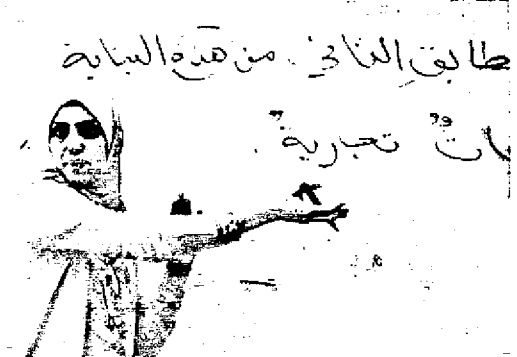 طابق الثاني من هذه البناية
ات" تجارية".